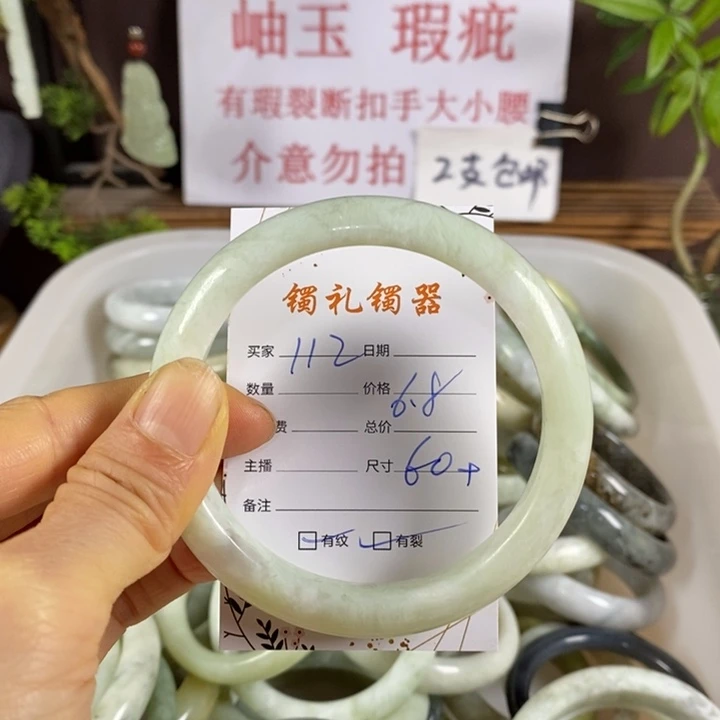 岫玉 瑕疵
有瑕裂断扣手大小腰
介意勿拍
2支包邮
镯礼镯器
买家 112 日期
数量 价格 6.8
费 总价
主播 尺寸 60+
备注
有纹 有裂